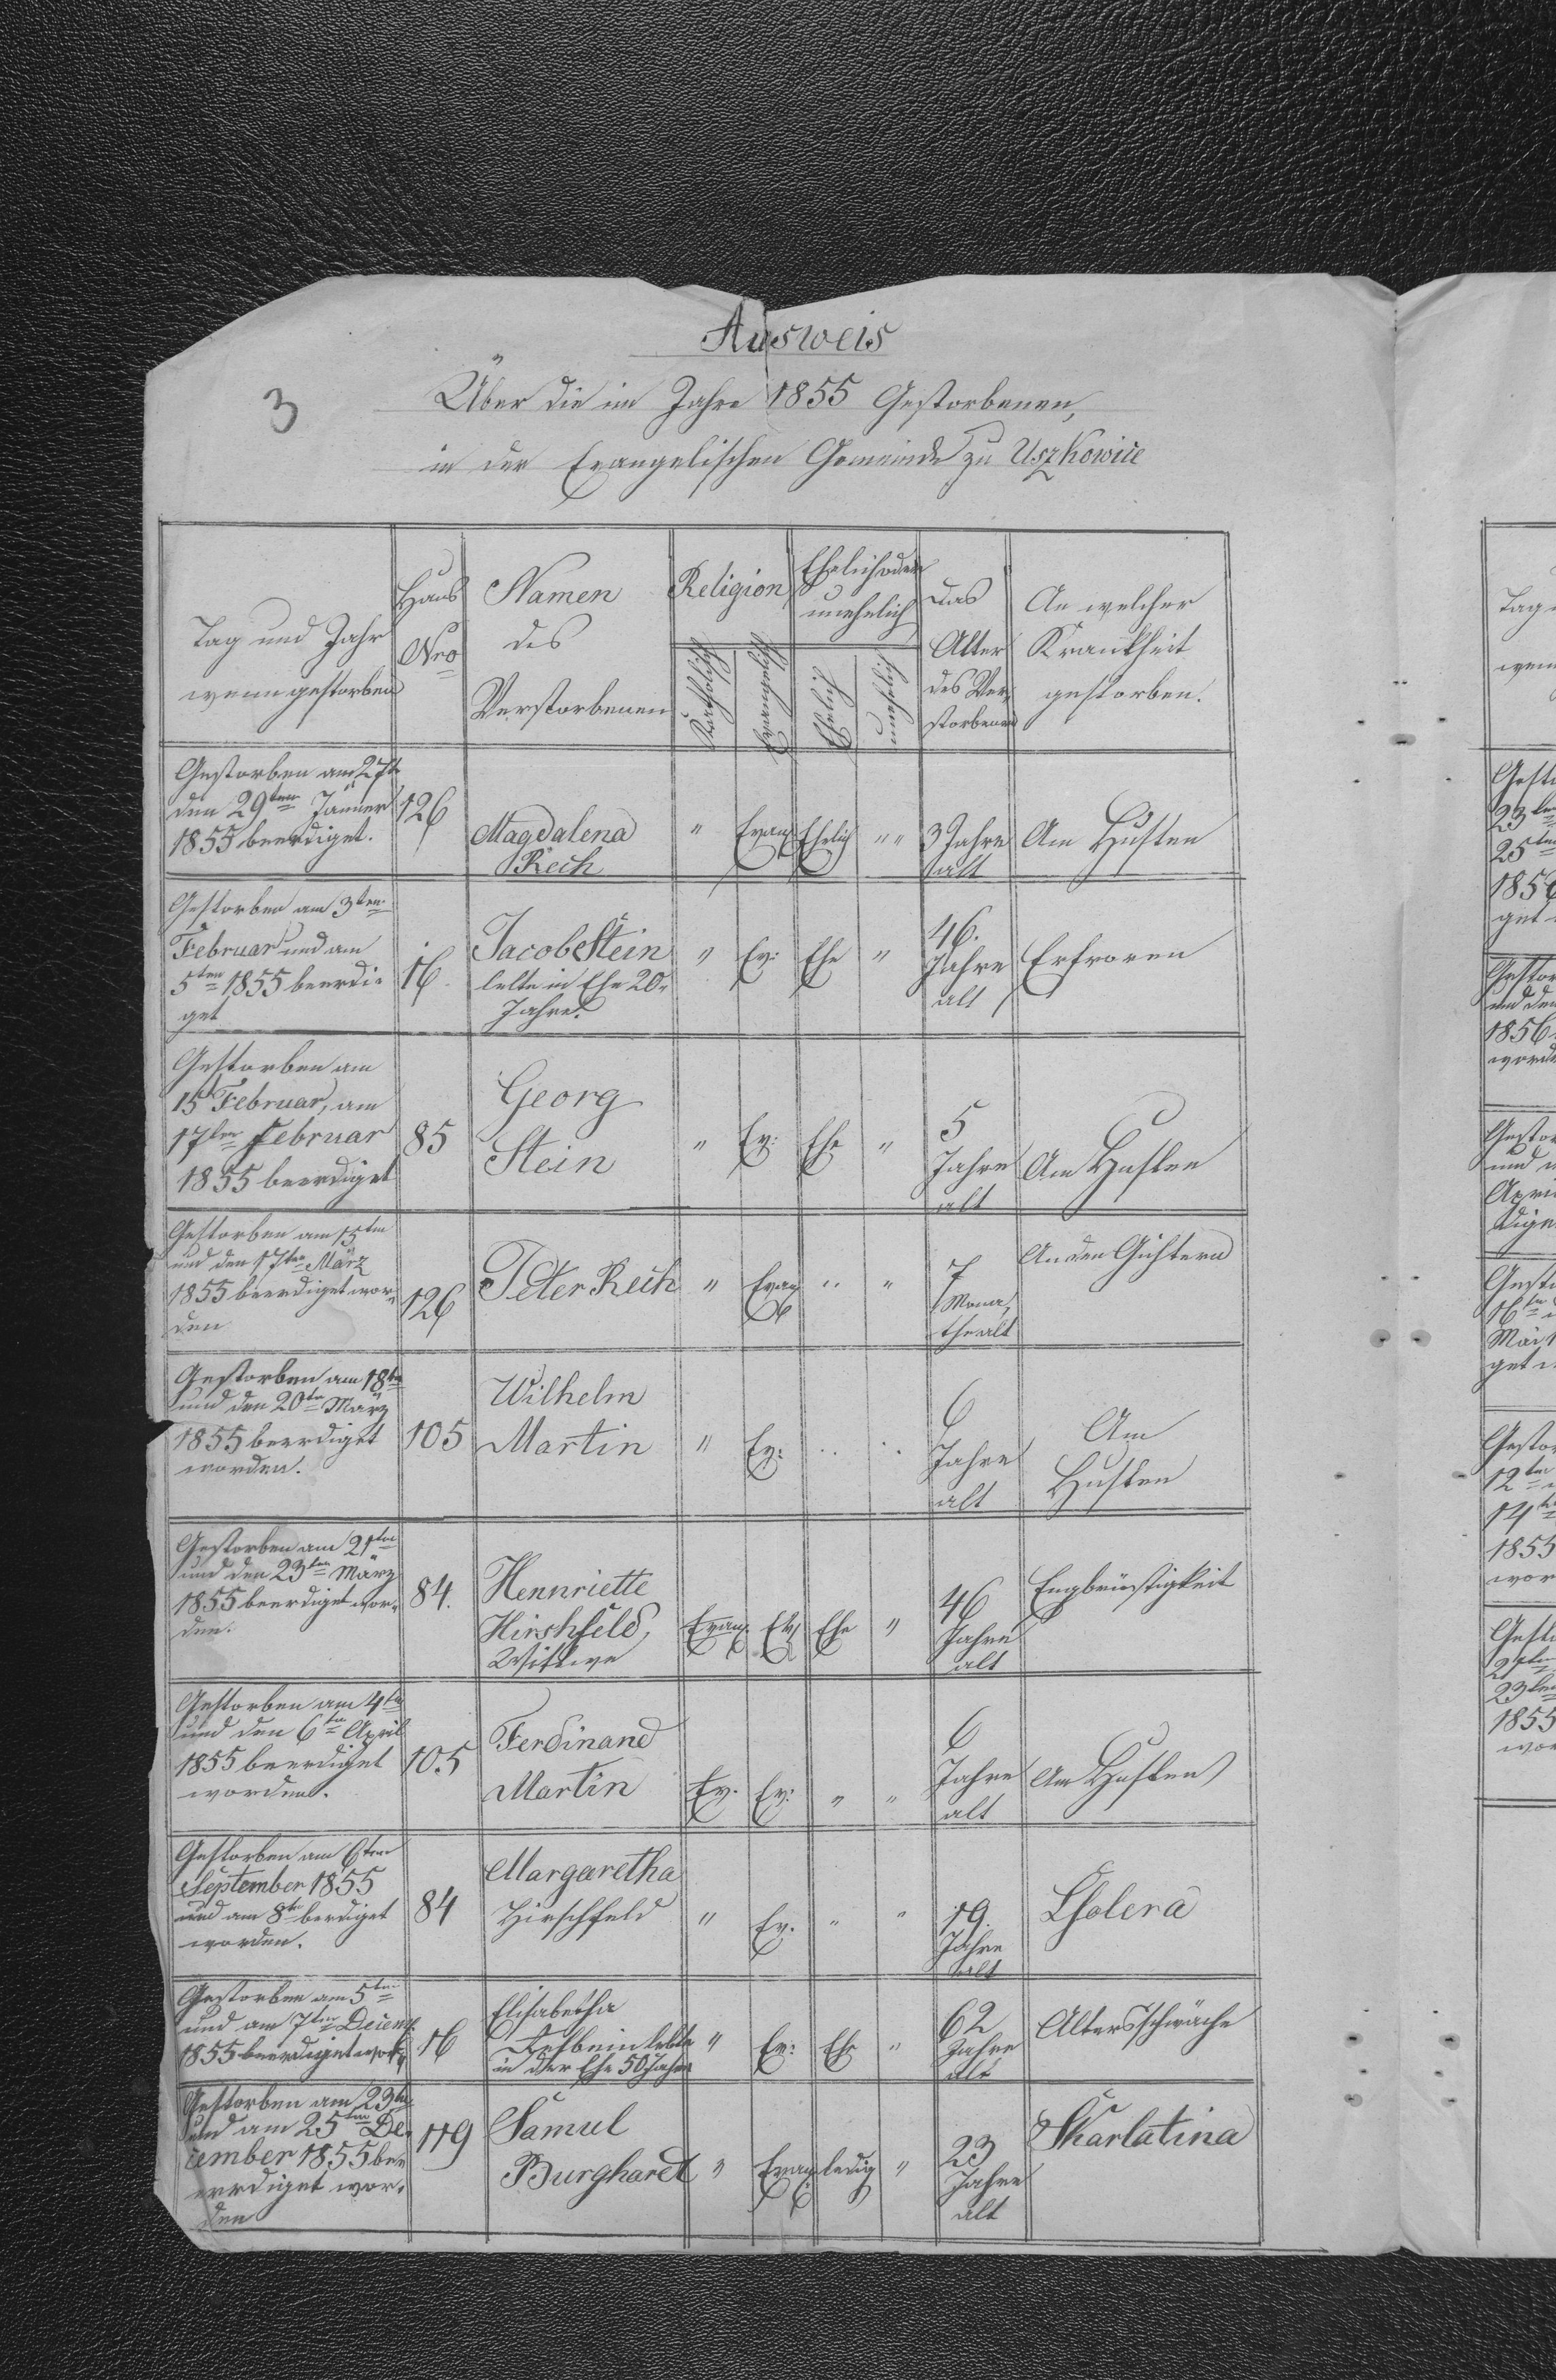 Ausweis
3
Über die im Jahre 1855 Gestorbenen,
in der Evangelischen Gemeinde zu Uszkowice
Tag und Jahr
wenn gestorben
Haus
Nro
Namen
des
Verstorbenen
Religion
Katholisch
Evangelisch
Ehelich oder
unehelich
Ehelich
unehelich
Das
Alter
des Ver-
storbenen
An welcher
Krankheit
gestorben.
Gestorben am 27t
den 29ten Jänner
1855 beerdiget.
126
Magdalena
Rech
" Evang Ehelich " "
3 Jahre
alt
Am Husten
Gestorben am 3ten
Februar und am
5ten 1855 beerdi-
get
16.
Jacob Stein
lebte in Ehe 20.
Jahre.
" Ev: Ehe "
46.
Jahre
alt
Erfroren
Gestorben am
15 Februar, am
17ten Februar
1855 beerdiget
85
Georg
Stein
" Ev: Ehe "
5
Jahre
alt
Am Husten
Gestorben am 15ten
und den 17ten März
1855 beerdiget wor-
den
126
Peter Rech
" Evang " "
7
Mona,
the alt
An den Gichtern
Gestorben am 18ten
und den 20ten März
1855 beerdiget
worden.
105
Wilhelm
Martin
" Ev: " "
6
Jahre
alt
Am
Husten
Gestorben am 21ten
und den 23ten März
1855 beerdiget wor-
den.
84.
Hennriette
Hirshfeld,
Wittwe
Evang. Ev Ehe "
46
Jahre
alt
Engbrüstigkeit
Gestorben am 4ten
und den 6ten April
1855 beerdiget
worden.
105
Ferdinand
Martin
Ev. Ev: " "
6
Jahre
alt
Am Husten
Gestorben am 6ten
September 1855
und am 8ten berdiget
worden.
84
Margaretha
Hirschfeld
" Ev. " "
19.
Jahre
alt
Cholera
Gestorben am 5ten
und am 7ten Decem
1855 beerdiget
16
Elisabetha
lebte
in der Ehe 50 Jahre
" Ev: Ehe "
62
Jahre
alt
Altersschwäche
Gestorben am 23ten
und am 25ten De,
cember 1855 bee
erdiget wor,
den
119
Samul
Burghardt
" Evang ledig "
23
Jahre
alt
Skarlatina
Tag
wenn
Gest
23ten
25ten
1856
get
Gestor
und den
1856
worde
Gestor
und
Apri
dige
Gest
16ten
Mai
get
Gestor
12ten
14ten
1855
wor
Gest
21ten
23ten
1855
wor